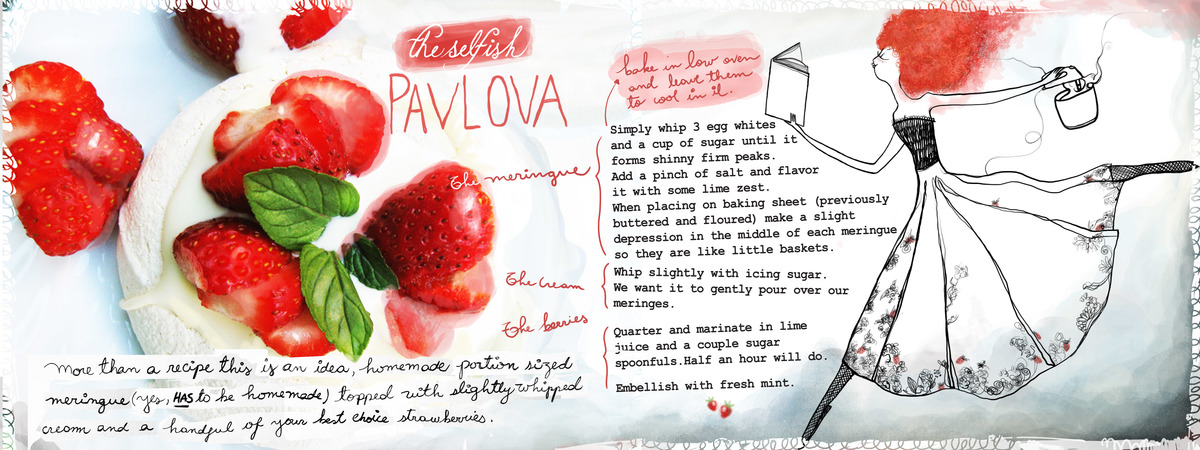 the selfish
PAVLOVA
more than a recipe this is an idea, homemade portion sized
meringue (yes, HAS to be homemade) topped with slightly whipped
cream and a handful of your best choice strawberries.
bake in low oven
and leave them
to cool in it.
The meringue
Simply whip 3 egg whites
and a cup of sugar until it
forms shinny firm peaks.
Add a pinch of salt and flavor
it with some lime zest.
When placing on baking sheet (previously
buttered and floured) make a slight
depression in the middle of each meringue
so they are like little baskets.
The cream
Whip slightly with icing sugar.
We want it to gently pour over our
meringes.
The berries
Quarter and marinate in lime
juice and a couple sugar
spoonfuls.Half an hour will do.
Embellish with fresh mint.